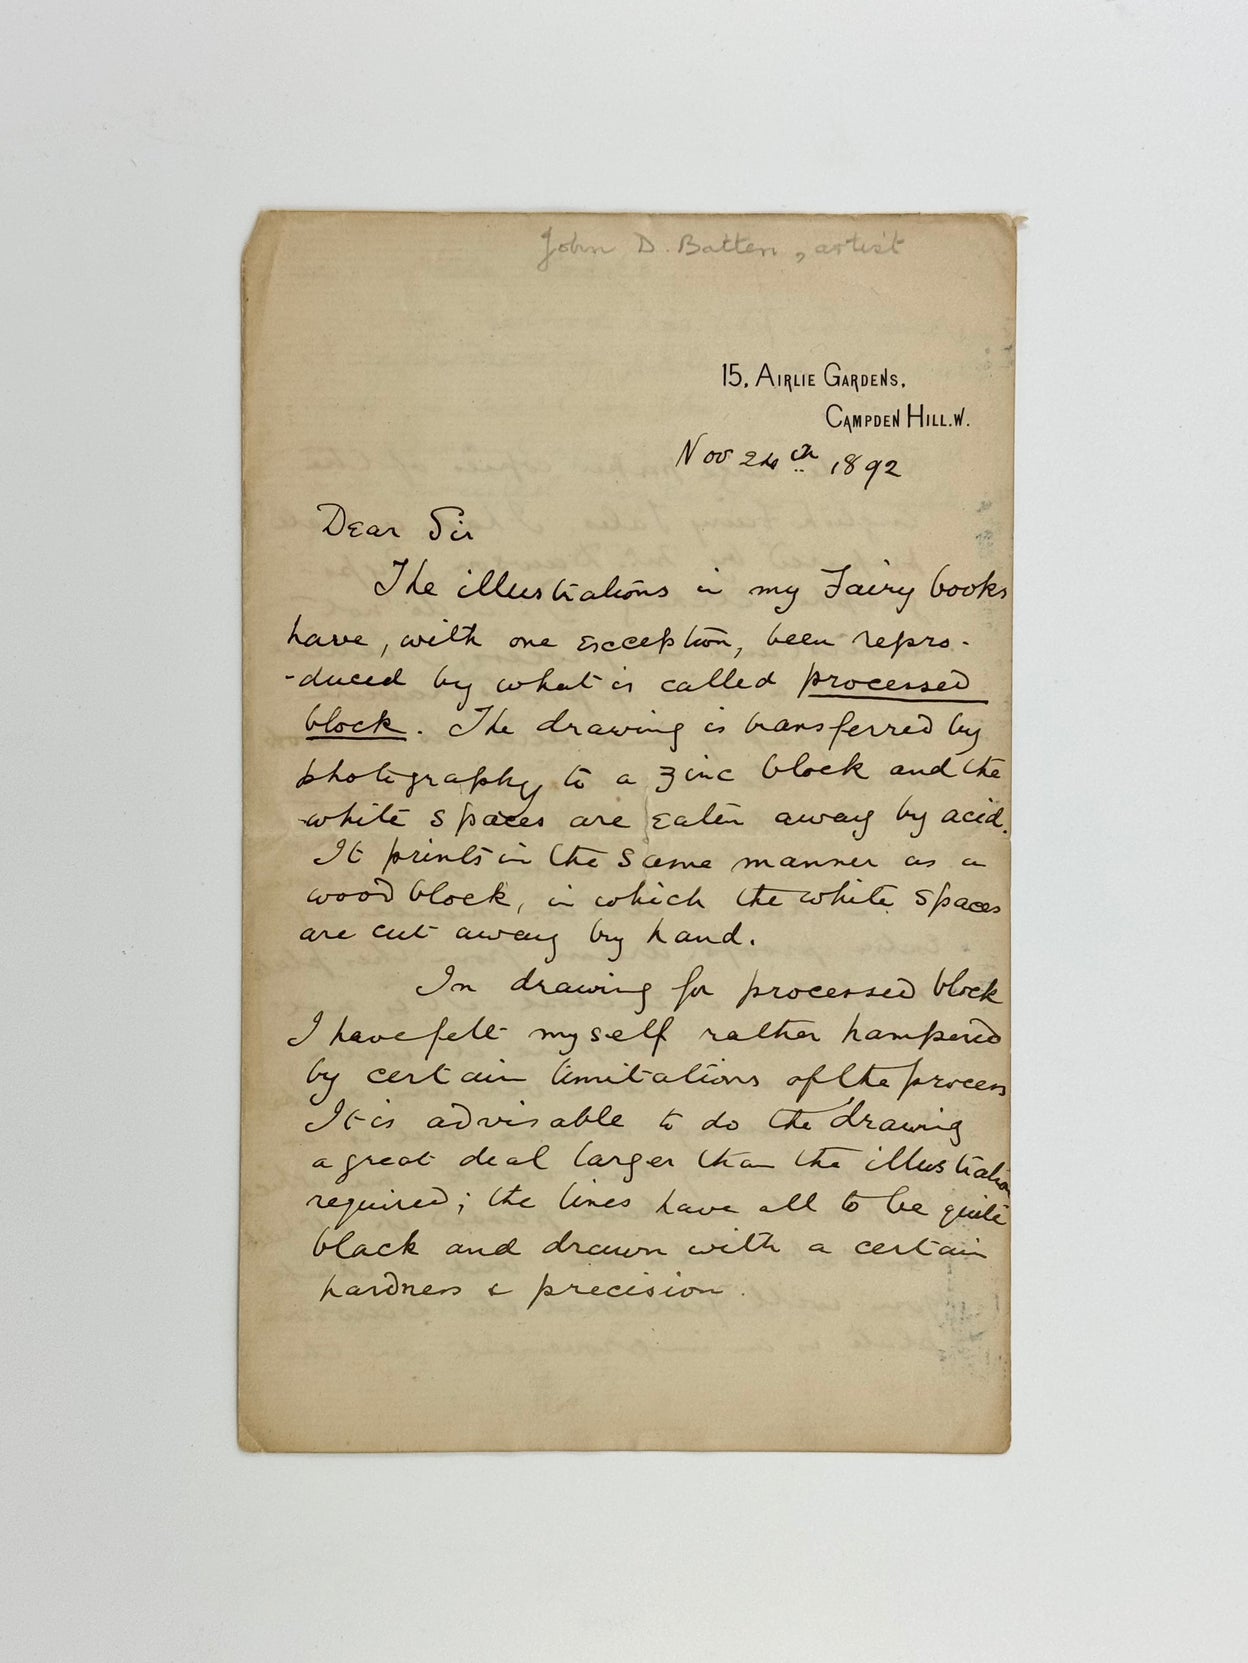 John D. Batten, artist
15, AIRLIE GARDENS,
CAMPDEN HILL. W.
Nov 24th 1892
Dear Sir
The illustrations in my Fairy books
have, with one exception, been repro-
-duced by what is called processed
block. The drawing is transferred by
photography to a zinc block and the
white spaces are eaten away by acid.
It prints in the same manner as a
wood block, in which the white spaces
are cut away by hand.
In drawing for processed block
I have felt myself rather hampered
by certain limitations of the process
It is advisable to do the drawing
a great deal larger than the illustration
required; the lines have all to be quite
black and drawn with a certain
hardness & precision.